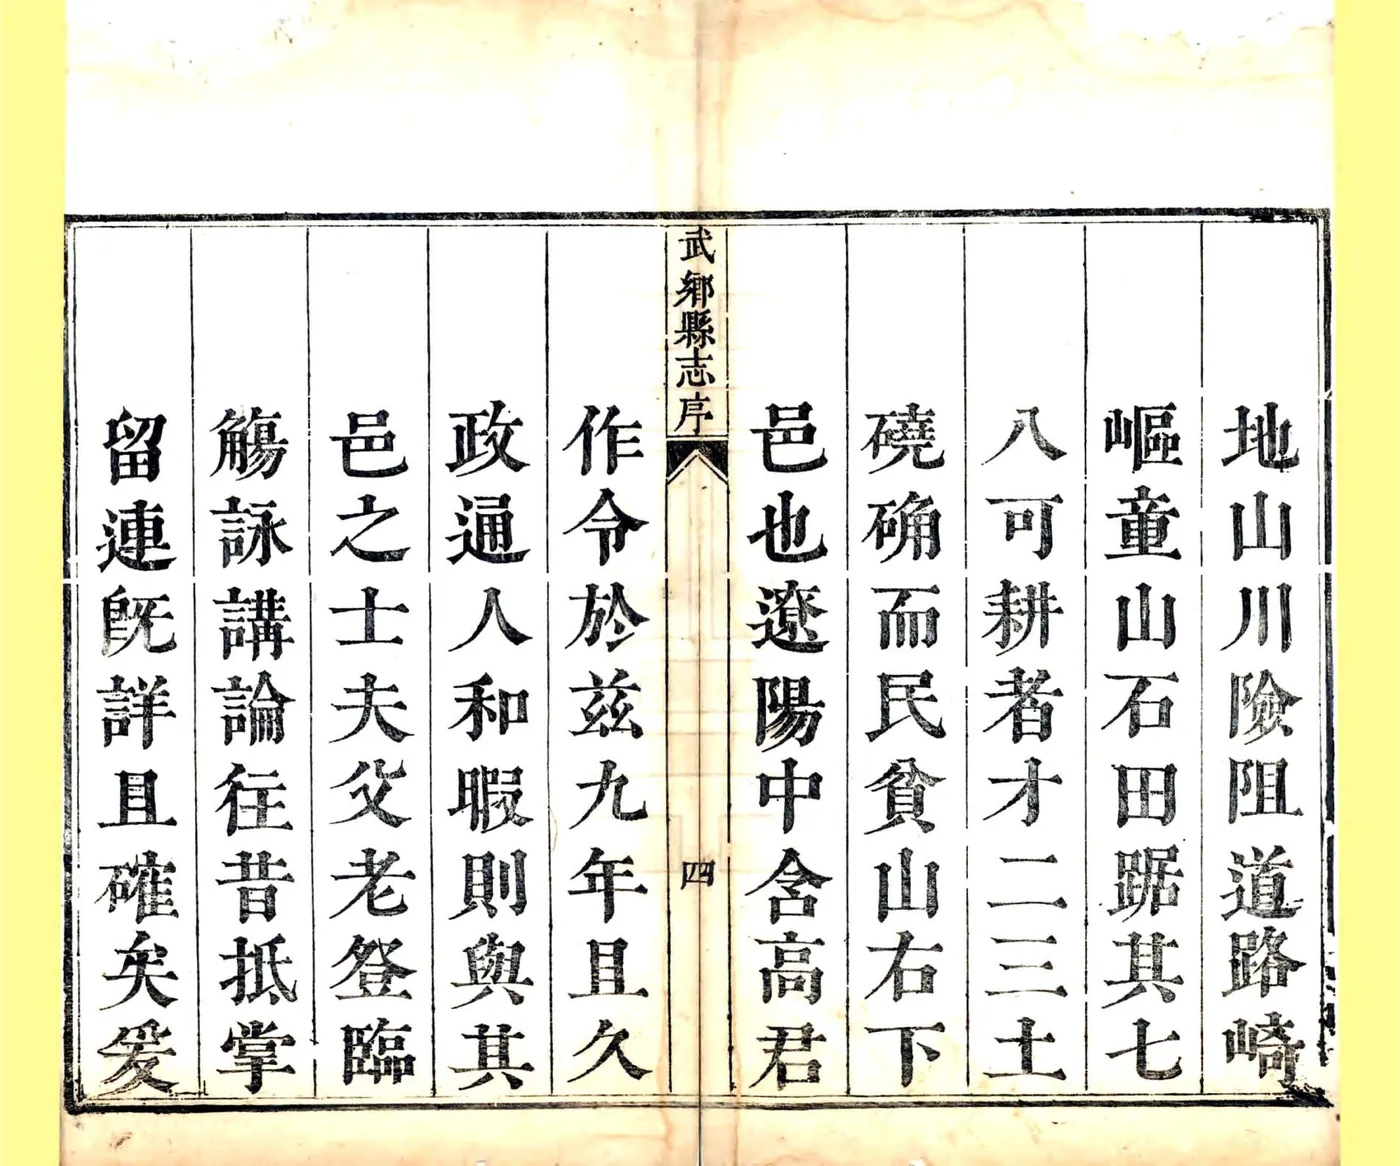 地山川險阻道路崎
嶇童山石田踞其七
八可耕者才二三土
磽确而民貧山右下
邑也遼陽中含高君
武鄉縣志序
四
作令於茲九年且久
政通人和暇則與其
邑之士夫父老登臨
觴詠講論往昔抵掌
留連旣詳且確矣爰